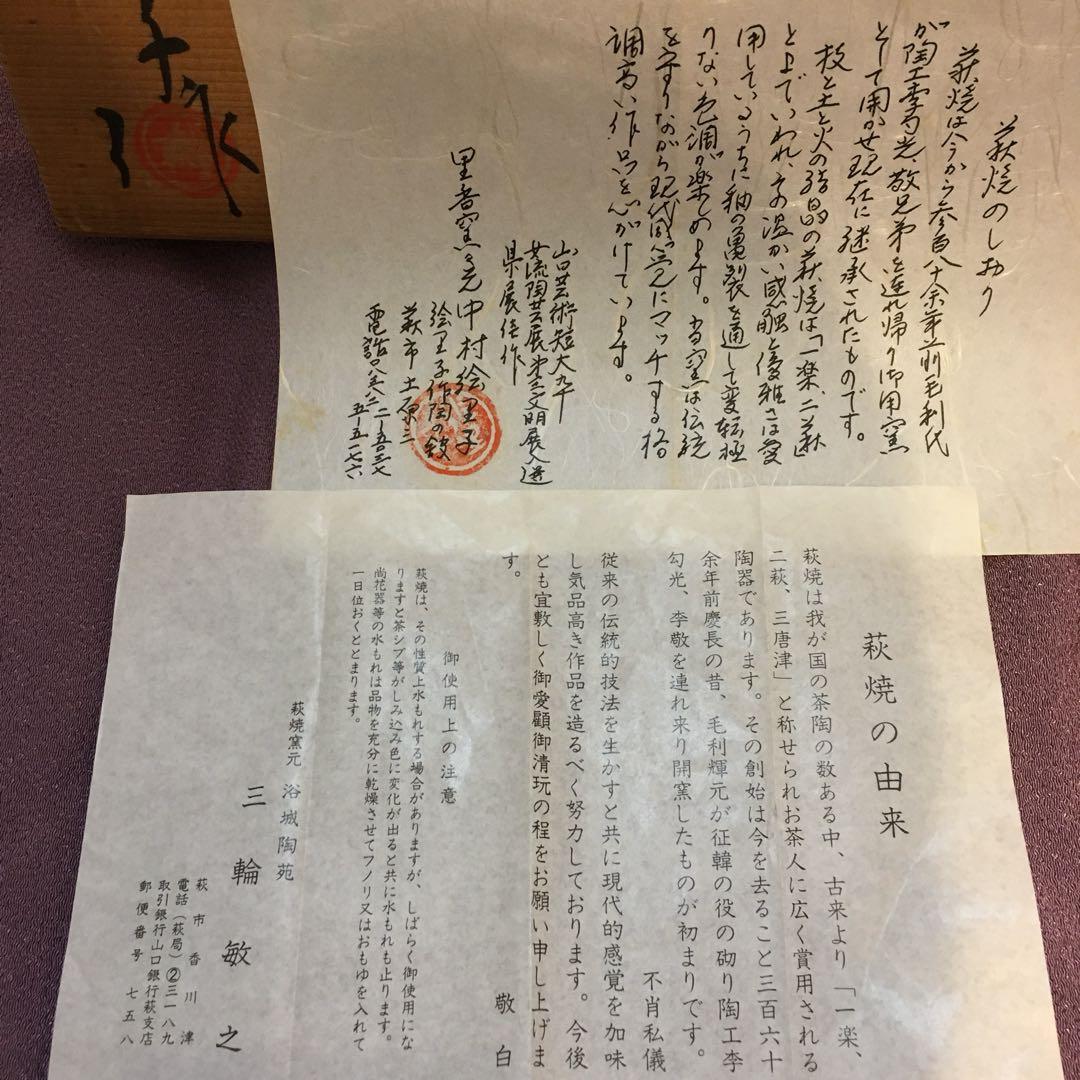 萩焼のしおり
萩焼は今から参百八十余年前毛利代
が陶工李勺光、敬兄弟を連れ帰り御用窯
として開かせ現在に継承されたものです。
技と土と火の結晶の萩焼は「一楽、二萩」
と上でいわれ、その温かい感触と優雅さは愛
用しているうちに釉の亀裂を通して変転極
りない色調が楽しめます。当窯は伝統
を守りながら現代感覚にマッチする格
調高い作品を心がけています。
山口芸術短大卆
女流陶芸展 文明展入選
県展佳作
窯元 中村絵里子
絵里子作陶の館
萩市土原三
電話〇八三八二
二-五〇三七
五-五一七六
子作
萩焼の由来
萩焼は我が国の茶陶の数ある中、古来より「一楽、
二萩、三唐津」と称せられお茶人に広く賞用される
陶器であります。その創始は今を去ること三百六十
余年前慶長の昔、毛利輝元が征韓の役の砌り陶工李
勺光、李敬を連れ来り開窯したものが初まりです。
不肖私儀
従来の伝統的技法を生かすと共に現代的感覚を加味
し気品高き作品を造るべく努力しております。今後
とも宜敷しく御愛顧御清玩の程をお願い申し上げま
す。
敬白
御使用上の注意
萩焼は、その性質上水もれする場合がありますが、しばらく御使用にな
りますと茶シブ等がしみ込み色に変化が出ると共に水もれも止ります。
尚花器等の水もれは品物を充分に乾燥させてフノリ又はおもゆを入れて
一日位おくととまります。
萩焼窯元 浴城陶苑
三輪敏之
萩市香川津
電話(萩局)②三一八九
取引銀行山口銀行萩支店
郵便番号 七五八